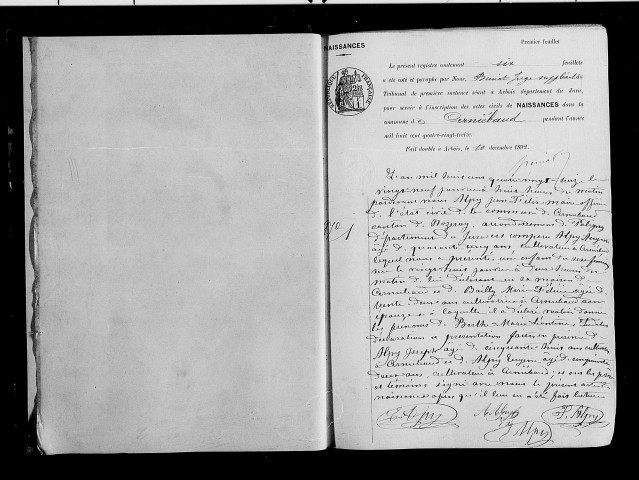 NAISSANCES
Premier feuillet
Le présent registre contenant six feuillets
a été coté et paraphé par Nous, Juge suppléant du
Tribunal de première instance séant à Arbois département du Jura,
pour servir à l'inscription des actes civils de NAISSANCES dans la
commune de Cerniébaud pendant l'année
mil huit cent quatre-vingt-treize.
Fait double à Arbois, le 10 décembre 1892.
RÉPUBLIQUE FRANÇAISE
N° 1
L'an mil huit cent quatre vingt treize le
vingt neuf janvier à huit heures du matin
pardevant nous Alpy Jean Félix maire officier
de l'état civil de la commune de Cerniébaud
canton de Nozeroy arrondissement de Poligny
département du Jura est comparu Alpy
âgé de quarante cinq ans cultivateur à Cerniébaud
lequel nous a présenté une enfant du sexe féminin
née le vingt huit janvier à heures du
matin de lui déclarant en sa maison à
Cerniébaud et de Bailly Marie âgée de
trente deux ans cultivatrice à Cerniébaud son
épouse et à laquelle il a déclaré vouloir donner
les prénoms de Berthe Marie Léontine
déclaration et présentation faites en présence de
Alpy Joseph âgé de cinquante huit ans cultivateur
à Cerniébaud et de Alpy Eugène âgé de cinquante
deux ans cultivateur à Cerniébaud et ont les père
et témoins signé avec nous le présent acte de
naissance après qu'il leur en a été fait lecture
Alpy
Alpy
Alpy
F. Alpy